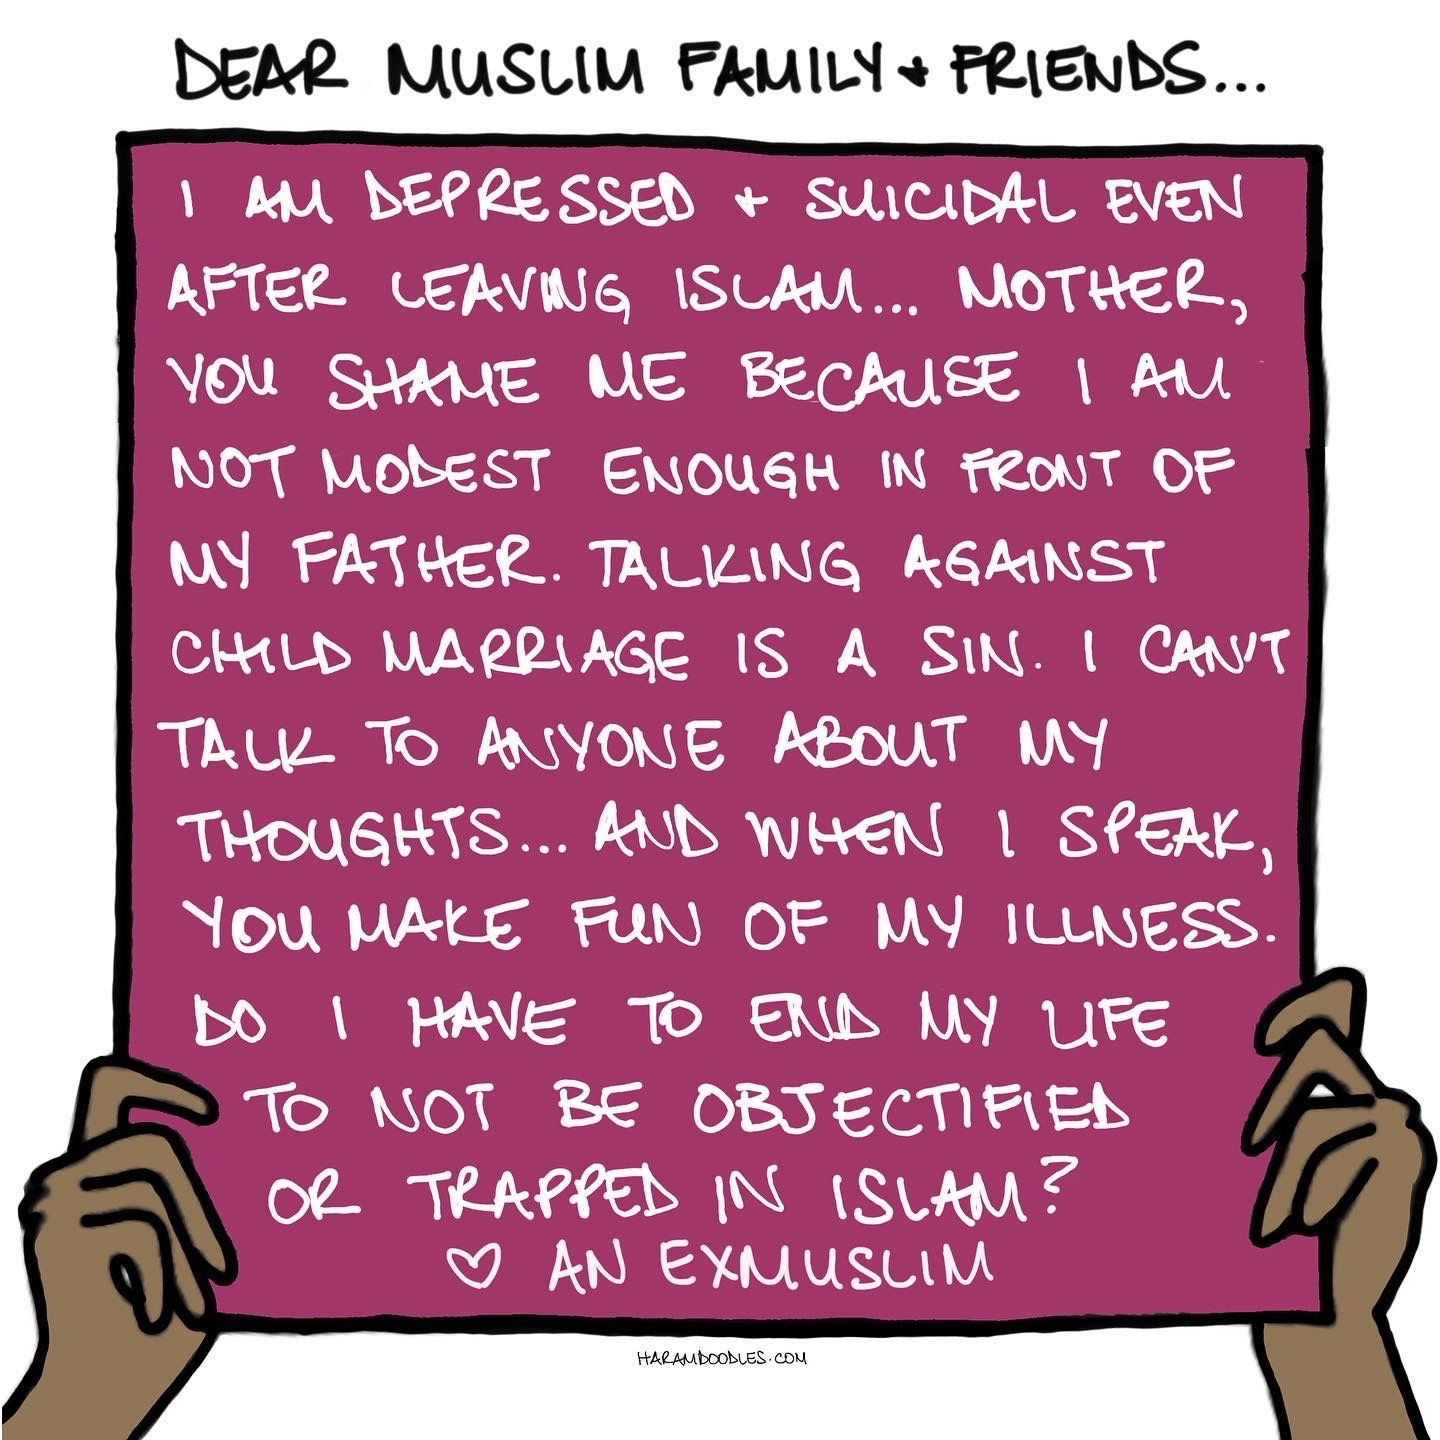 DEAR MUSLIM FAMILY + FRIENDS...
I AM DEPRESSED + SUICIDAL EVEN
AFTER LEAVING ISLAM... MOTHER,
YOU SHAME ME BECAUSE I AM
NOT MODEST ENOUGH IN FRONT OF
MY FATHER. TALKING AGAINST
CHILD MARRIAGE IS A SIN. I CAN'T
TALK TO ANYONE ABOUT MY
THOUGHTS... AND WHEN I SPEAK,
YOU MAKE FUN OF MY ILLNESS.
DO I HAVE TO END MY LIFE
TO NOT BE OBJECTIFIED
OR TRAPPED IN ISLAM?
♡ AN EXMUSLIM
HARAMDOODLES.COM